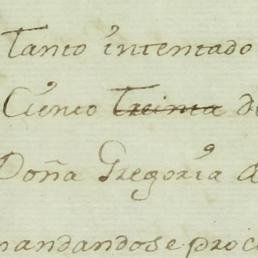 Tanto intentado
Ciento Treinta d
Doña Gregoria
mandandose proc